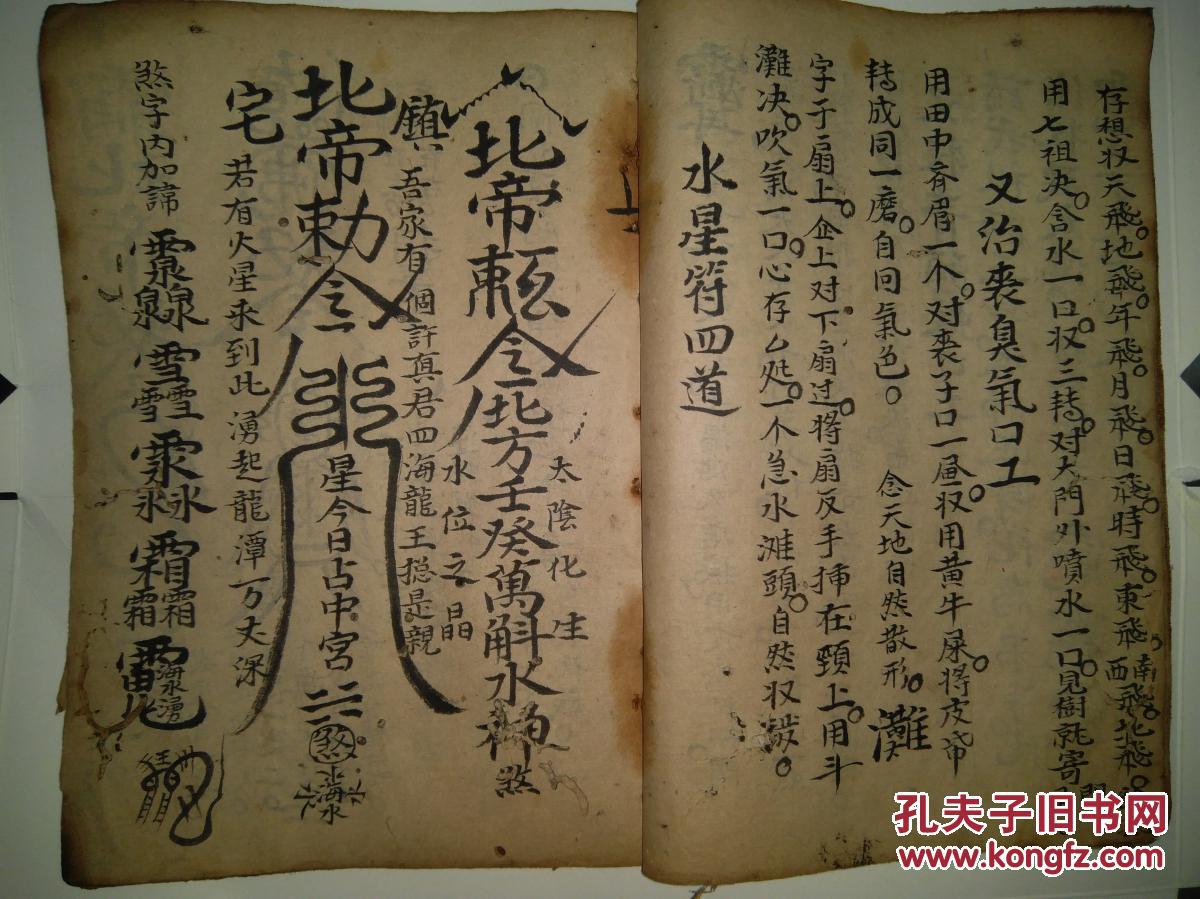 存想収天飛。地飛。年飛。月飛。日飛。時飛。東飛。南飛。西飛。北飛。
用七祖决。含水一口。収三轉。对大門外噴水一口。見樹就寄
又治喪臭氣口工
用田中斉眉一个。对喪子口一昼収。用黄牛屎。将皮帋
轉成同一磨。自回氣色。 念天地自然散形。 灘
字于扇上。企上对下扇过。将扇反手揷在頸上。用斗
灘决。吹氣一口。心存厶処。一个急水滩頭。自然収
水星符四道
太陰化生
北帝勅令北方壬癸萬斛水神煞
水位之晶
鎮 吾家有個許真君四海龍王搃是親
北帝勅令 星今日占中宮 煞 海水
宅 若有火星来到此湧起龍潭万丈深
煞字内加諱
霜霜霜
海水湧
孔夫子旧书网
www.kongfz.com